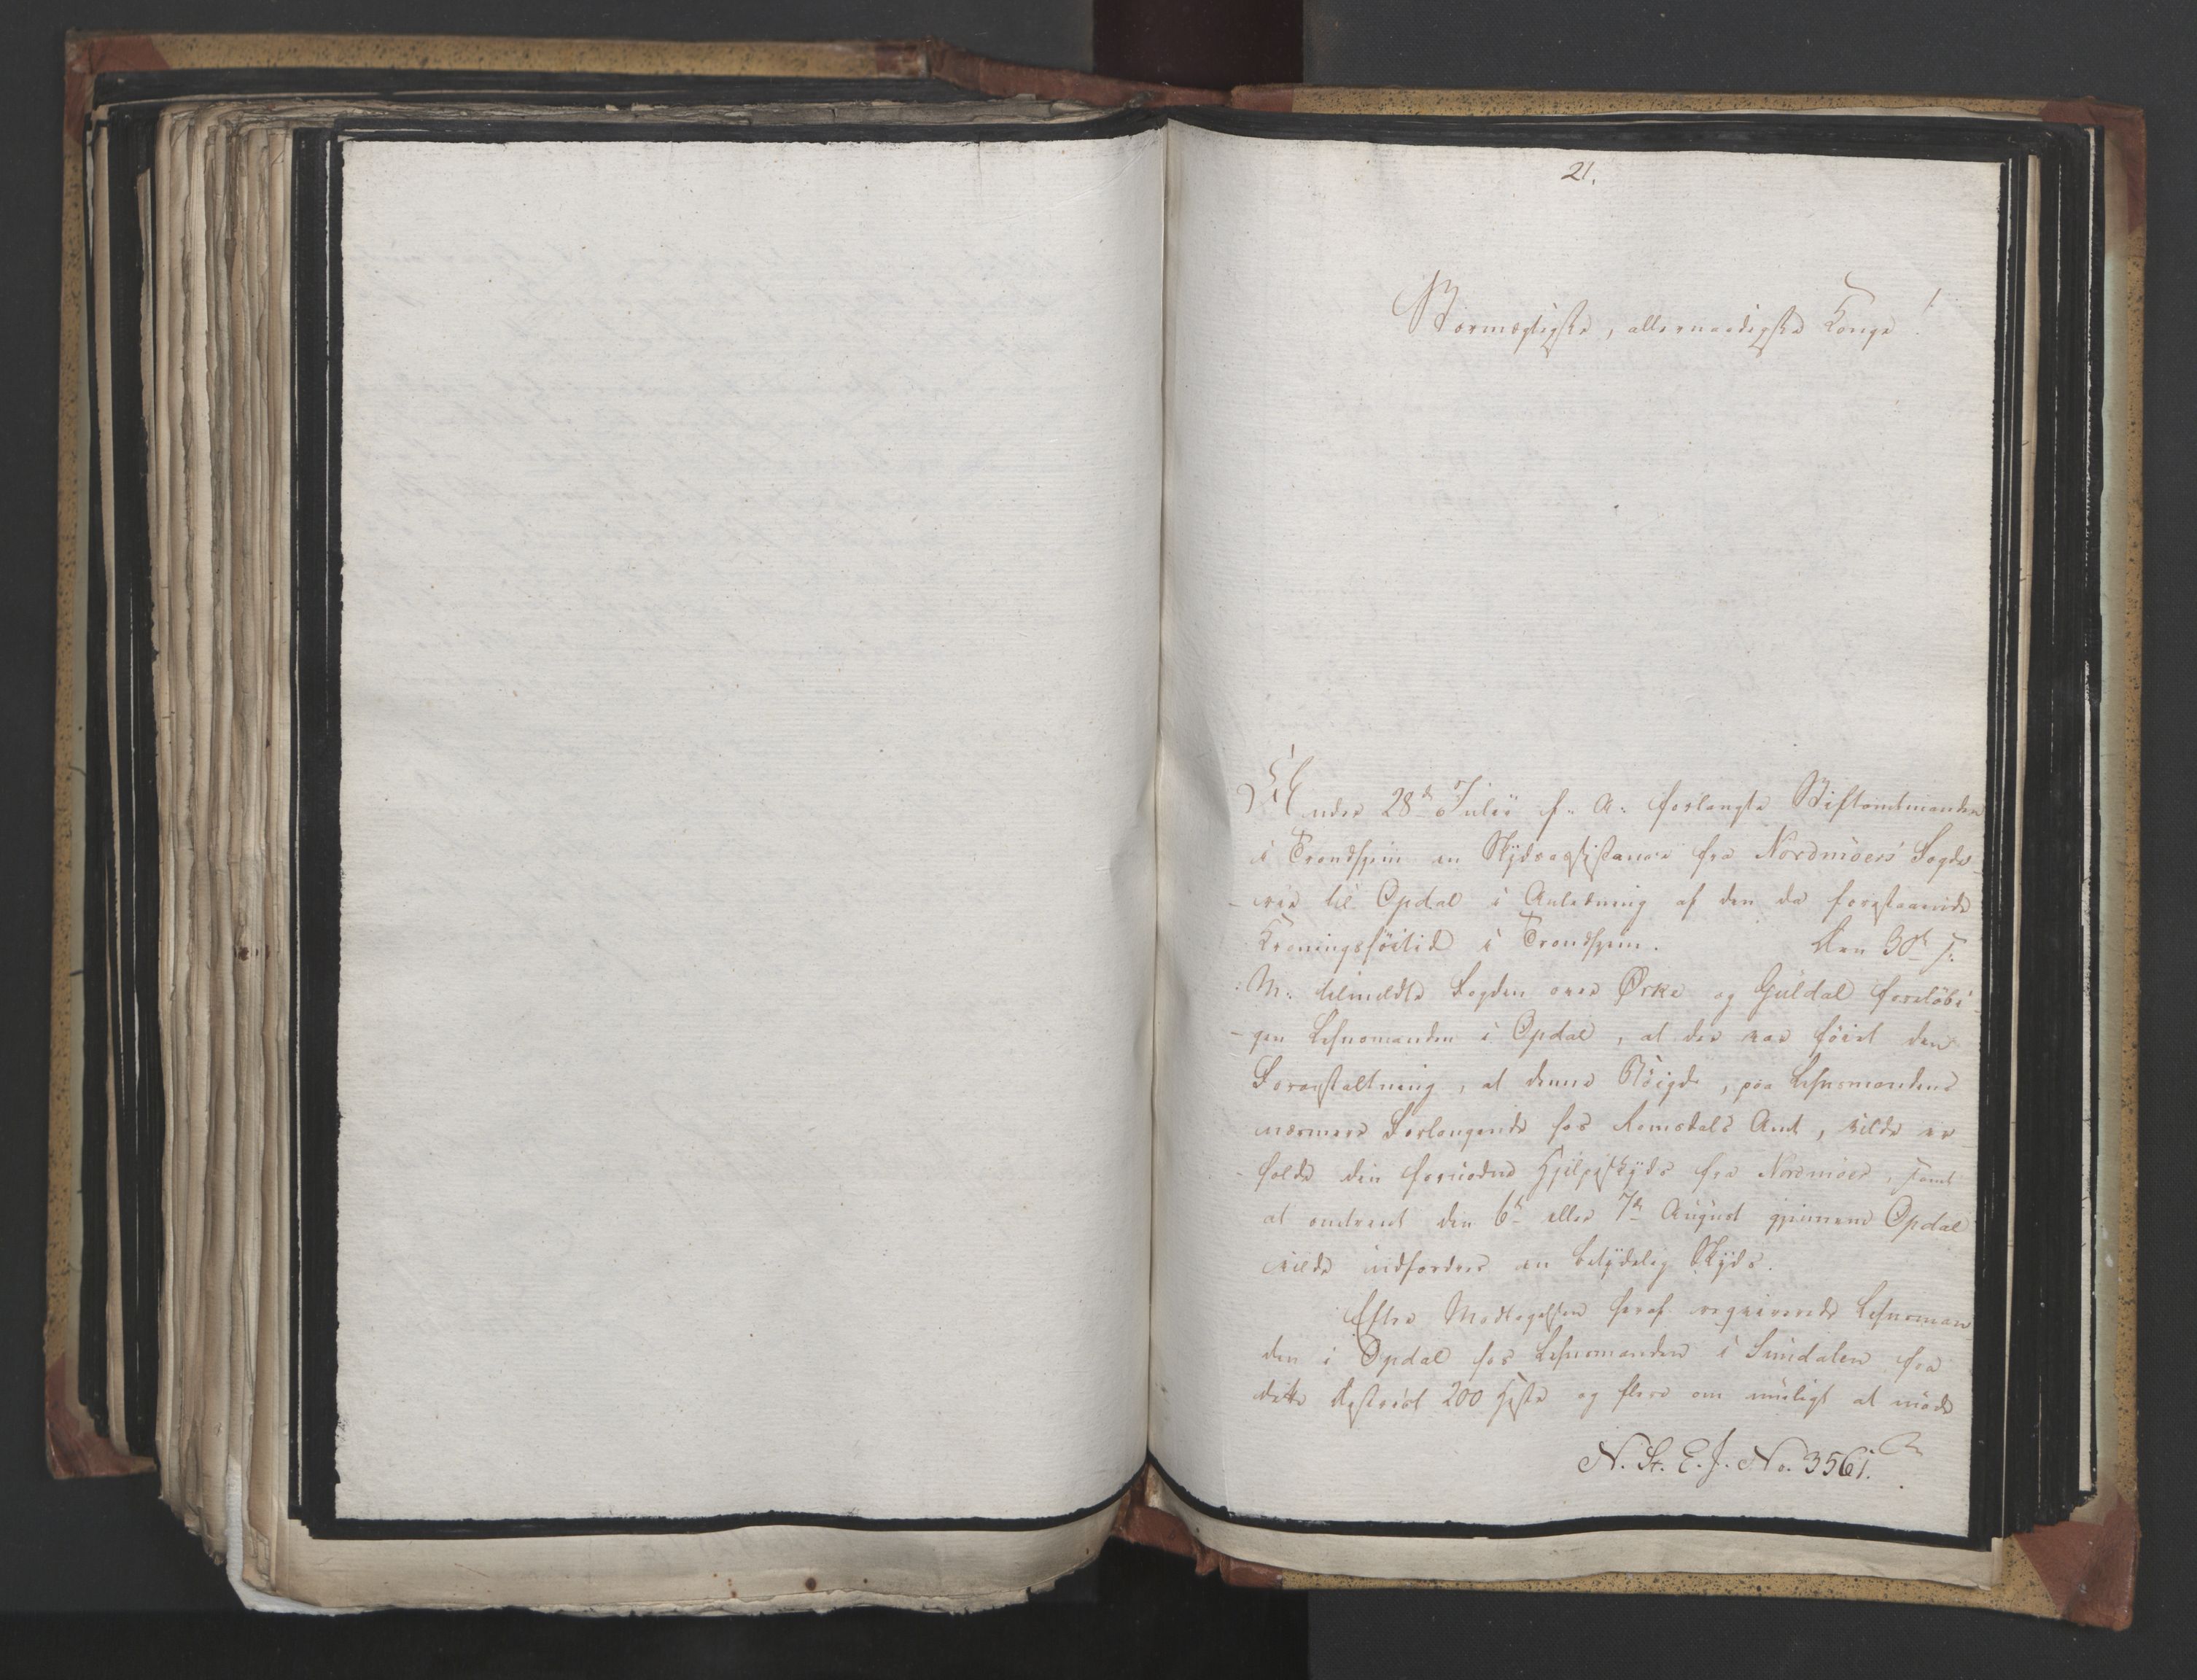 21.
Stormægtigste, allernaadigste Konge!
Under 28de Julii f: A: forlangte Stiftamtmanden
i Trondhjem en Skydsassistance fra Nordmöers Fogde-
-rie til Opdal i Anledning af den da forestaaende
Kroningshöitid i Trondhjem. Den 30te s:
M: tilmeldte Fogden over Ørke og Guldal forelöbi-
-gen Lehnsmanden i Opdal, at der var föiet den
Foranstaltning, at denne Bÿigd, paa Lehnsmandens
nærmere Forlangende hos Romsdals Amt, vilde er-
-holde den fornödne Hjelpeskyds fra Nordmöer, samt
at omtrent den 6te eller 7de August gjennem Opdal
vilde udfordres en betydelig Skyds.
Efter Modtagelsen heraf reqvirerede Lehnsman
den i Opdal hos Lehnsmanden i Sundalen fra
dette District 200 Heste og flere om muligt at möde
N. St. E. J. No. 3561.